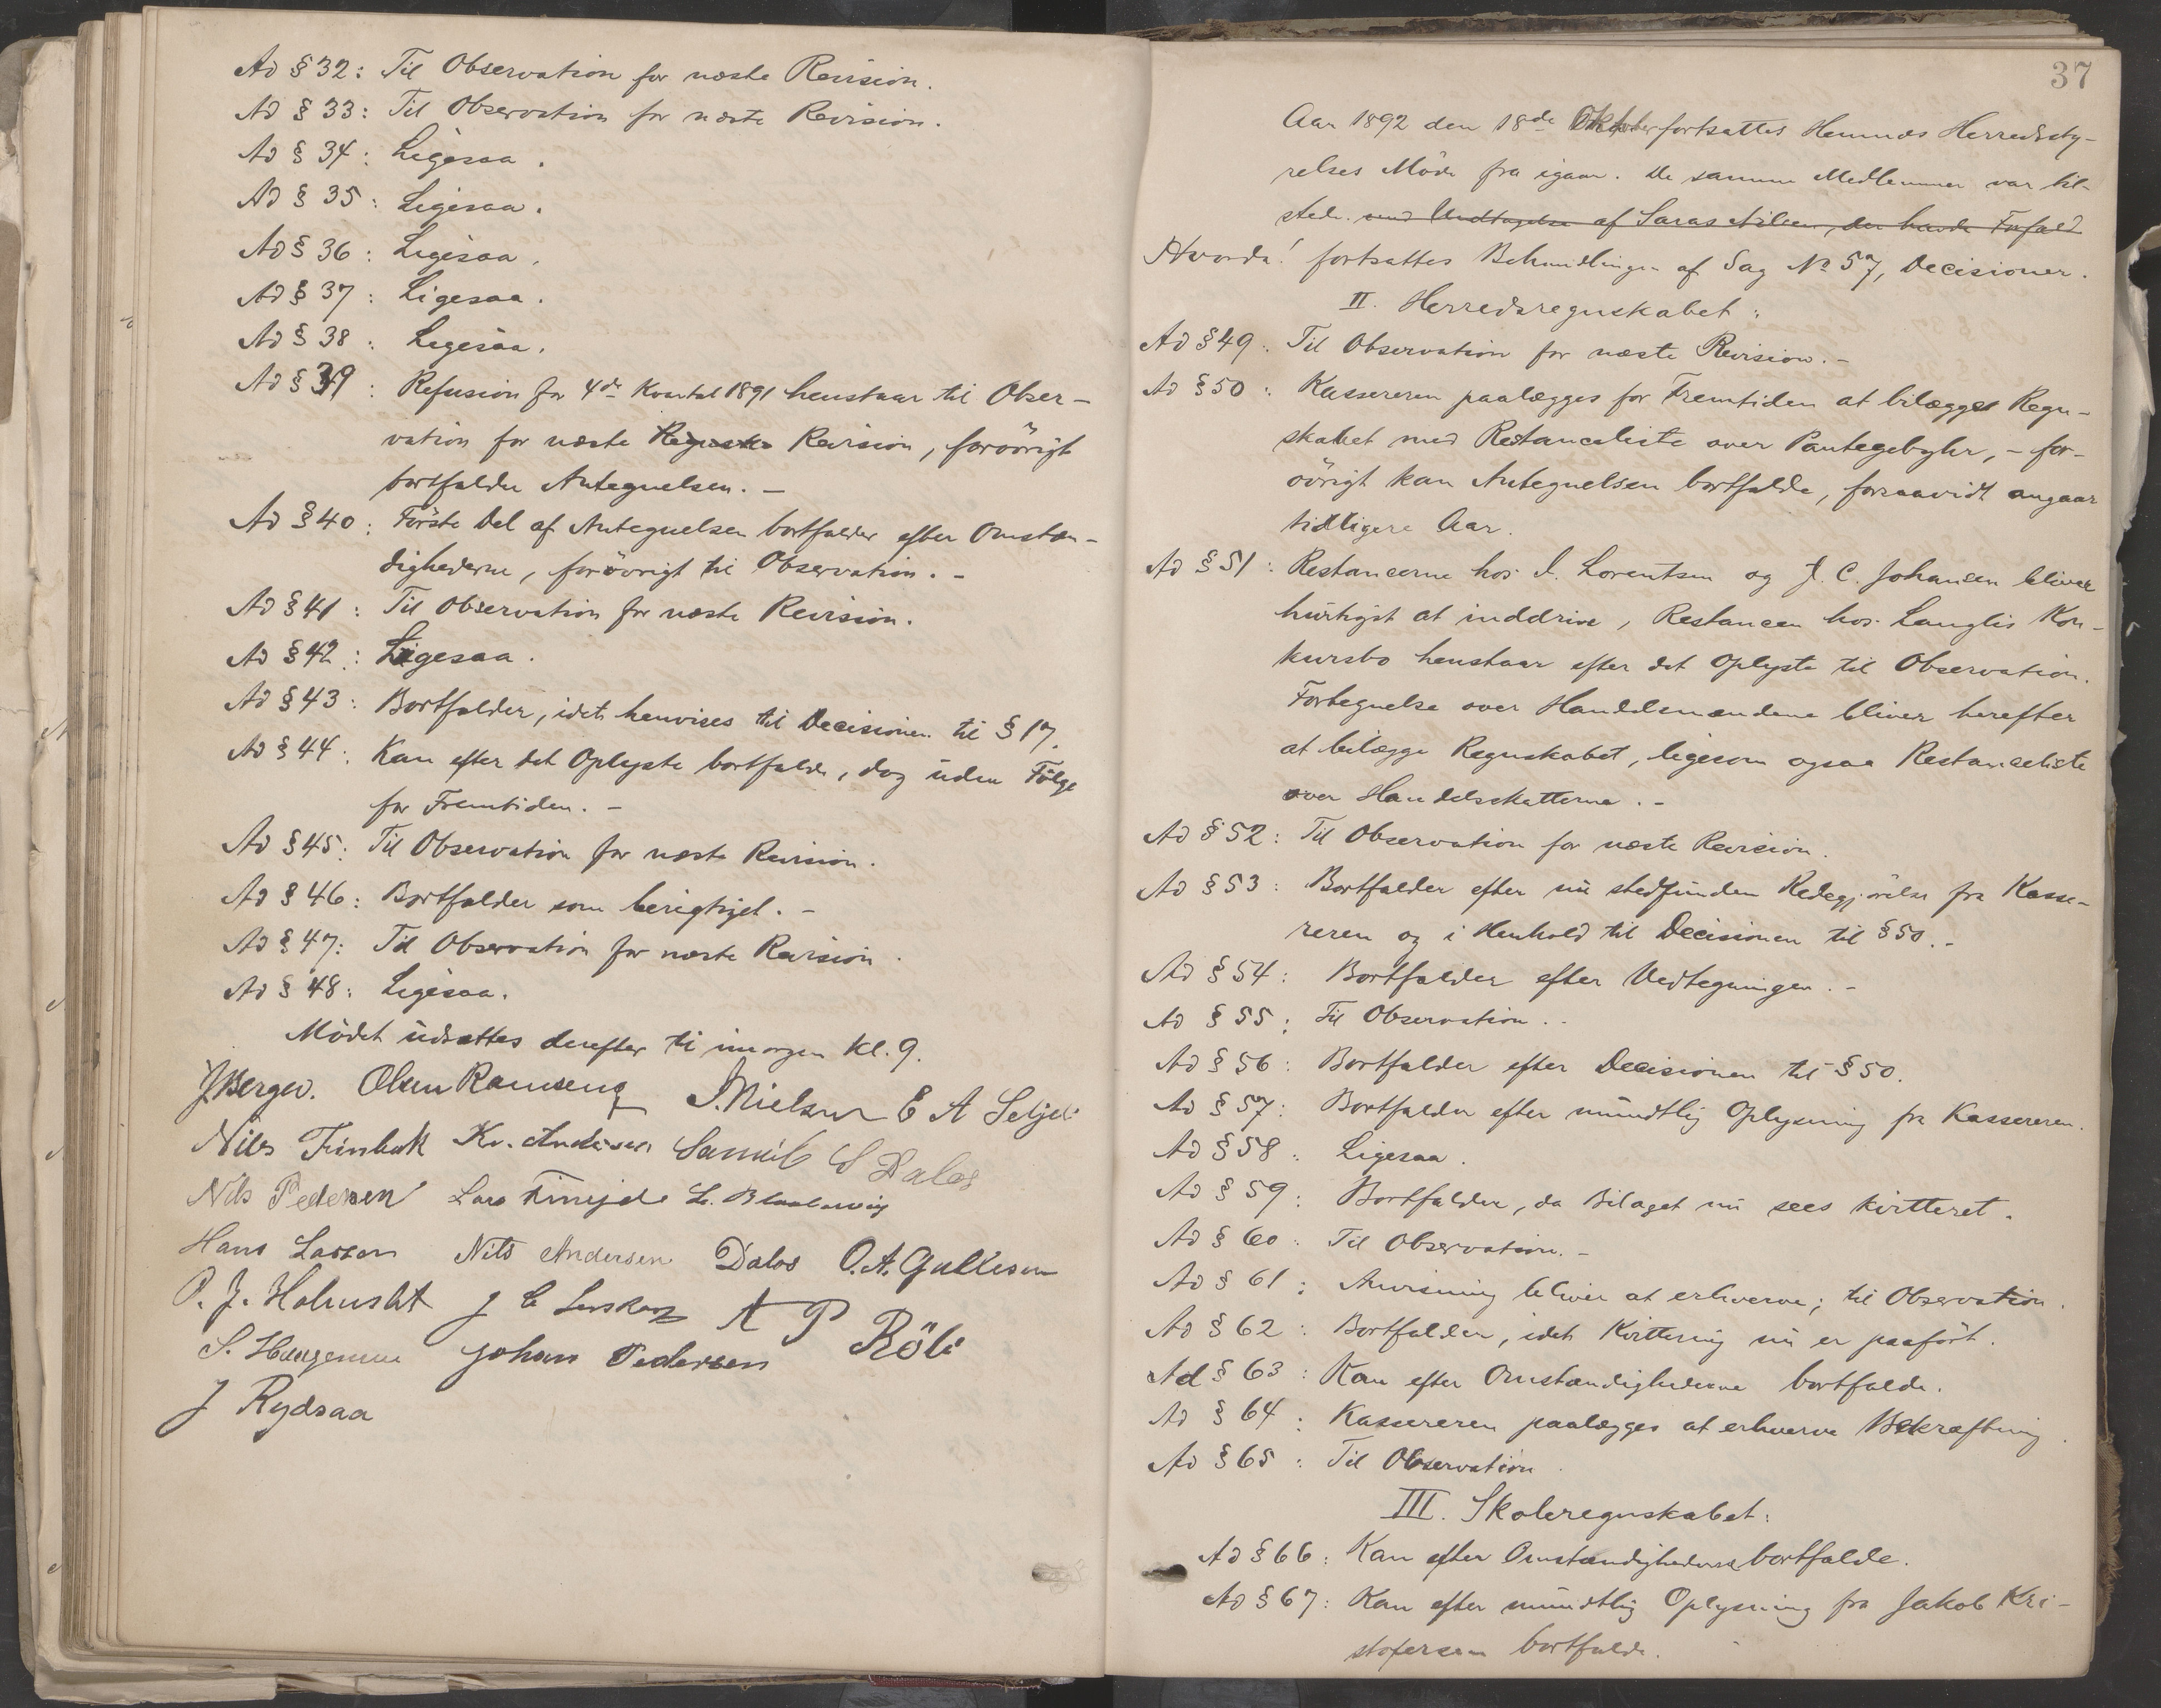 Ad § 32: Til Observation for næste Revision.
Ad § 33: Til Observation for næste Revision.
Ad § 34: Ligesaa.
Ad § 35: Ligesaa.
Ad § 36: Ligesaa.
Ad § 37: Ligesaa.
Ad § 38: Ligesaa.
Ad § 39: Refusion for 4de Kvartal 1891 henstaar til Obser-
vation for næste Revision, forövrigt
bortfalder Antegnelsen. -
Ad § 40: Förste Del af Antegnelsen bortfalder efter Omstæn-
dighederne, forövrigt til Observation. -
Ad § 41: Til Observation for næste Revision.
Ad § 42: Ligesaa.
Ad § 43: Bortfalder, idet henvises til Decisionen til § 17.
Ad § 44: Kan efter det Oplyste bortfalde, dog uden Fölge
for Fremtiden. -
Ad § 45: Til Observation for næste Revision.
Ad § 46: Bortfalder som berigtiget. -
Ad § 47: Til Observation for næste Revision.
Ad § 48: Ligesaa.
Mödet udsattes derefter til imorgen Kl. 9.
J Berger. Olsen Ramseng J. Nielsen E A Seljeli
Nils Finbak Kr. Andersen Samuel S Dalos
Nils Pedersen Lars Finejde L.
Hans Larsen Nils Andersen Dalos O. A. Gullesen
P. J. Holmslet J C A P Röli
S. Johan Pedersen
J Rydsaa
37
Aar 1892 den 18de Oktober fortsattes Hemnæs Herredssty-
relses Möde fra igaar. De samme Medlemmer var til-
stede. med Undtagelse af Saras Nilsen, der havde Forfald
Hvorda! fortsattes Behandlingen af Sag No 57, Decisioner.
II. Herredsregnskabet:
Ad § 49: Til Observation for næste Revision. -
Ad § 50: Kassereren paalægges for Fremtiden at bilægge Regn-
skabet med Restanceliste over Pantegebyhr, - for-
övrigt kan Antegnelsen bortfalde, forsaavidt angaar
tidligere Aar.
Ad § 51: Restancerne hos I. Lorentsen og J. C. Johansen bliver
hurtigst at inddrive, Restancen hos Langlis Kon-
kursbo henstaar efter det Oplyste til Observation.
Fortegnelse over Handelsmændene bliver herefter
at bilægge Regnskabet, ligesom ogsaa Restanceliste
over Handelsskatterne. -
Ad § 52: Til Observation for næste Revision.
Ad § 53: Bortfalder efter nu stedfunden Redegjörelse fra Kasse-
reren og i Henhold til Decisionen til § 50. -
Ad § 54: Bortfalder efter Vedtegningen. -
Ad § 55: Til Observation. -
Ad § 56: Bortfalder efter Decisionen til § 50.
Ad § 57: Bortfalder efter mundtlig Oplysning fra Kassereren.
Ad § 58: Ligesaa.
Ad § 59: Bortfalder, da Bilaget nu sees kvitteret.
Ad § 60: Til Observation. -
Ad § 61: Anvisning bliver at erhverve; til Observation.
Ad § 62: Bortfalder, idet Kvittering nu er paafört.
Ad § 63: Kan efter Omstændighederne bortfalde.
Ad § 64: Kassereren paalægges at erhverve Bekræftning.
Ad § 65: Til Observation
III. Skoleregnskabet:
Ad § 66: Kan efter Omstændighederne bortfalde.
Ad § 67: Kan efter mundtlig Oplysning fra Jakob Kri-
stofersen bortfalde.